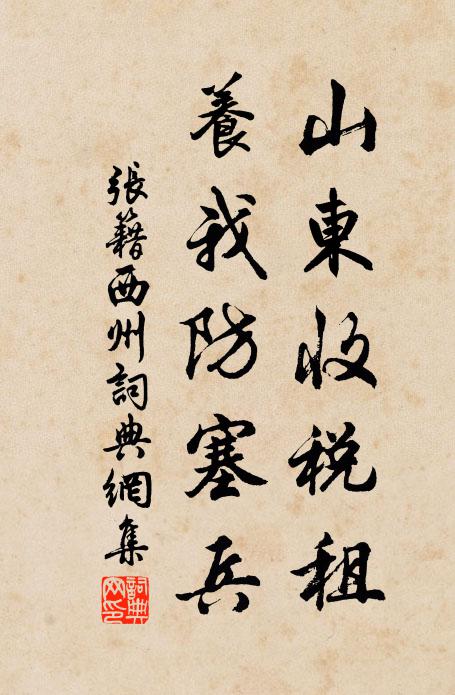 山東收税租
養我防塞兵
張籍西州詞典網集
詞典網印